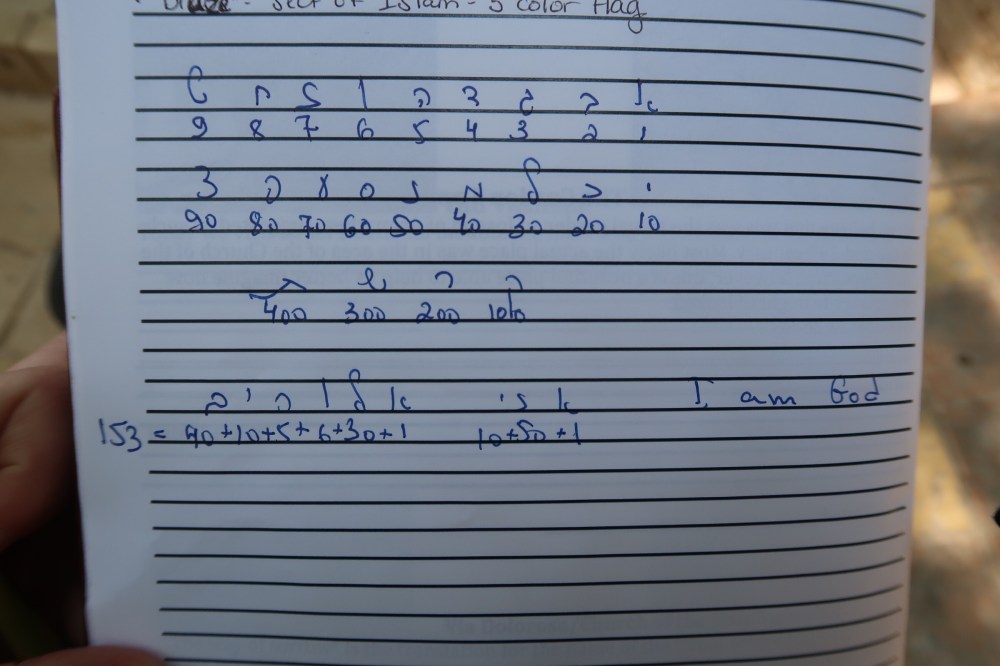 Druze - sect of Islam - 5 color flag
א ב ג ד ה ו ז ח ט
9 8 7 6 5 4 3 2 1
י כ ל מ נ ס ע פ צ
90 80 70 60 50 40 30 20 10
ק ר ש ת
400 300 200 100
I am God אני אלוהים
153 = 40+10+5+6+30+1 10+50+1